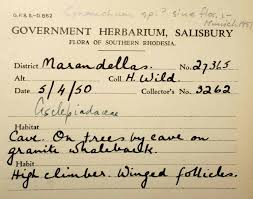 G.P.& S.-D 662
Cynanchum sp? sine flor.
GOVERNMENT HERBARIUM, SALISBURY
FLORA OF SOUTHERN RHODESIA.
District Marandellas. No. 27365
Alt. Coll. H. Wild.
Date 5/4/50 Collector's No. 3262
Asclepiadaceae
Habitat
Cave. On trees by cave on
granite whaleback.
Habit
High climber. Winged follicles.